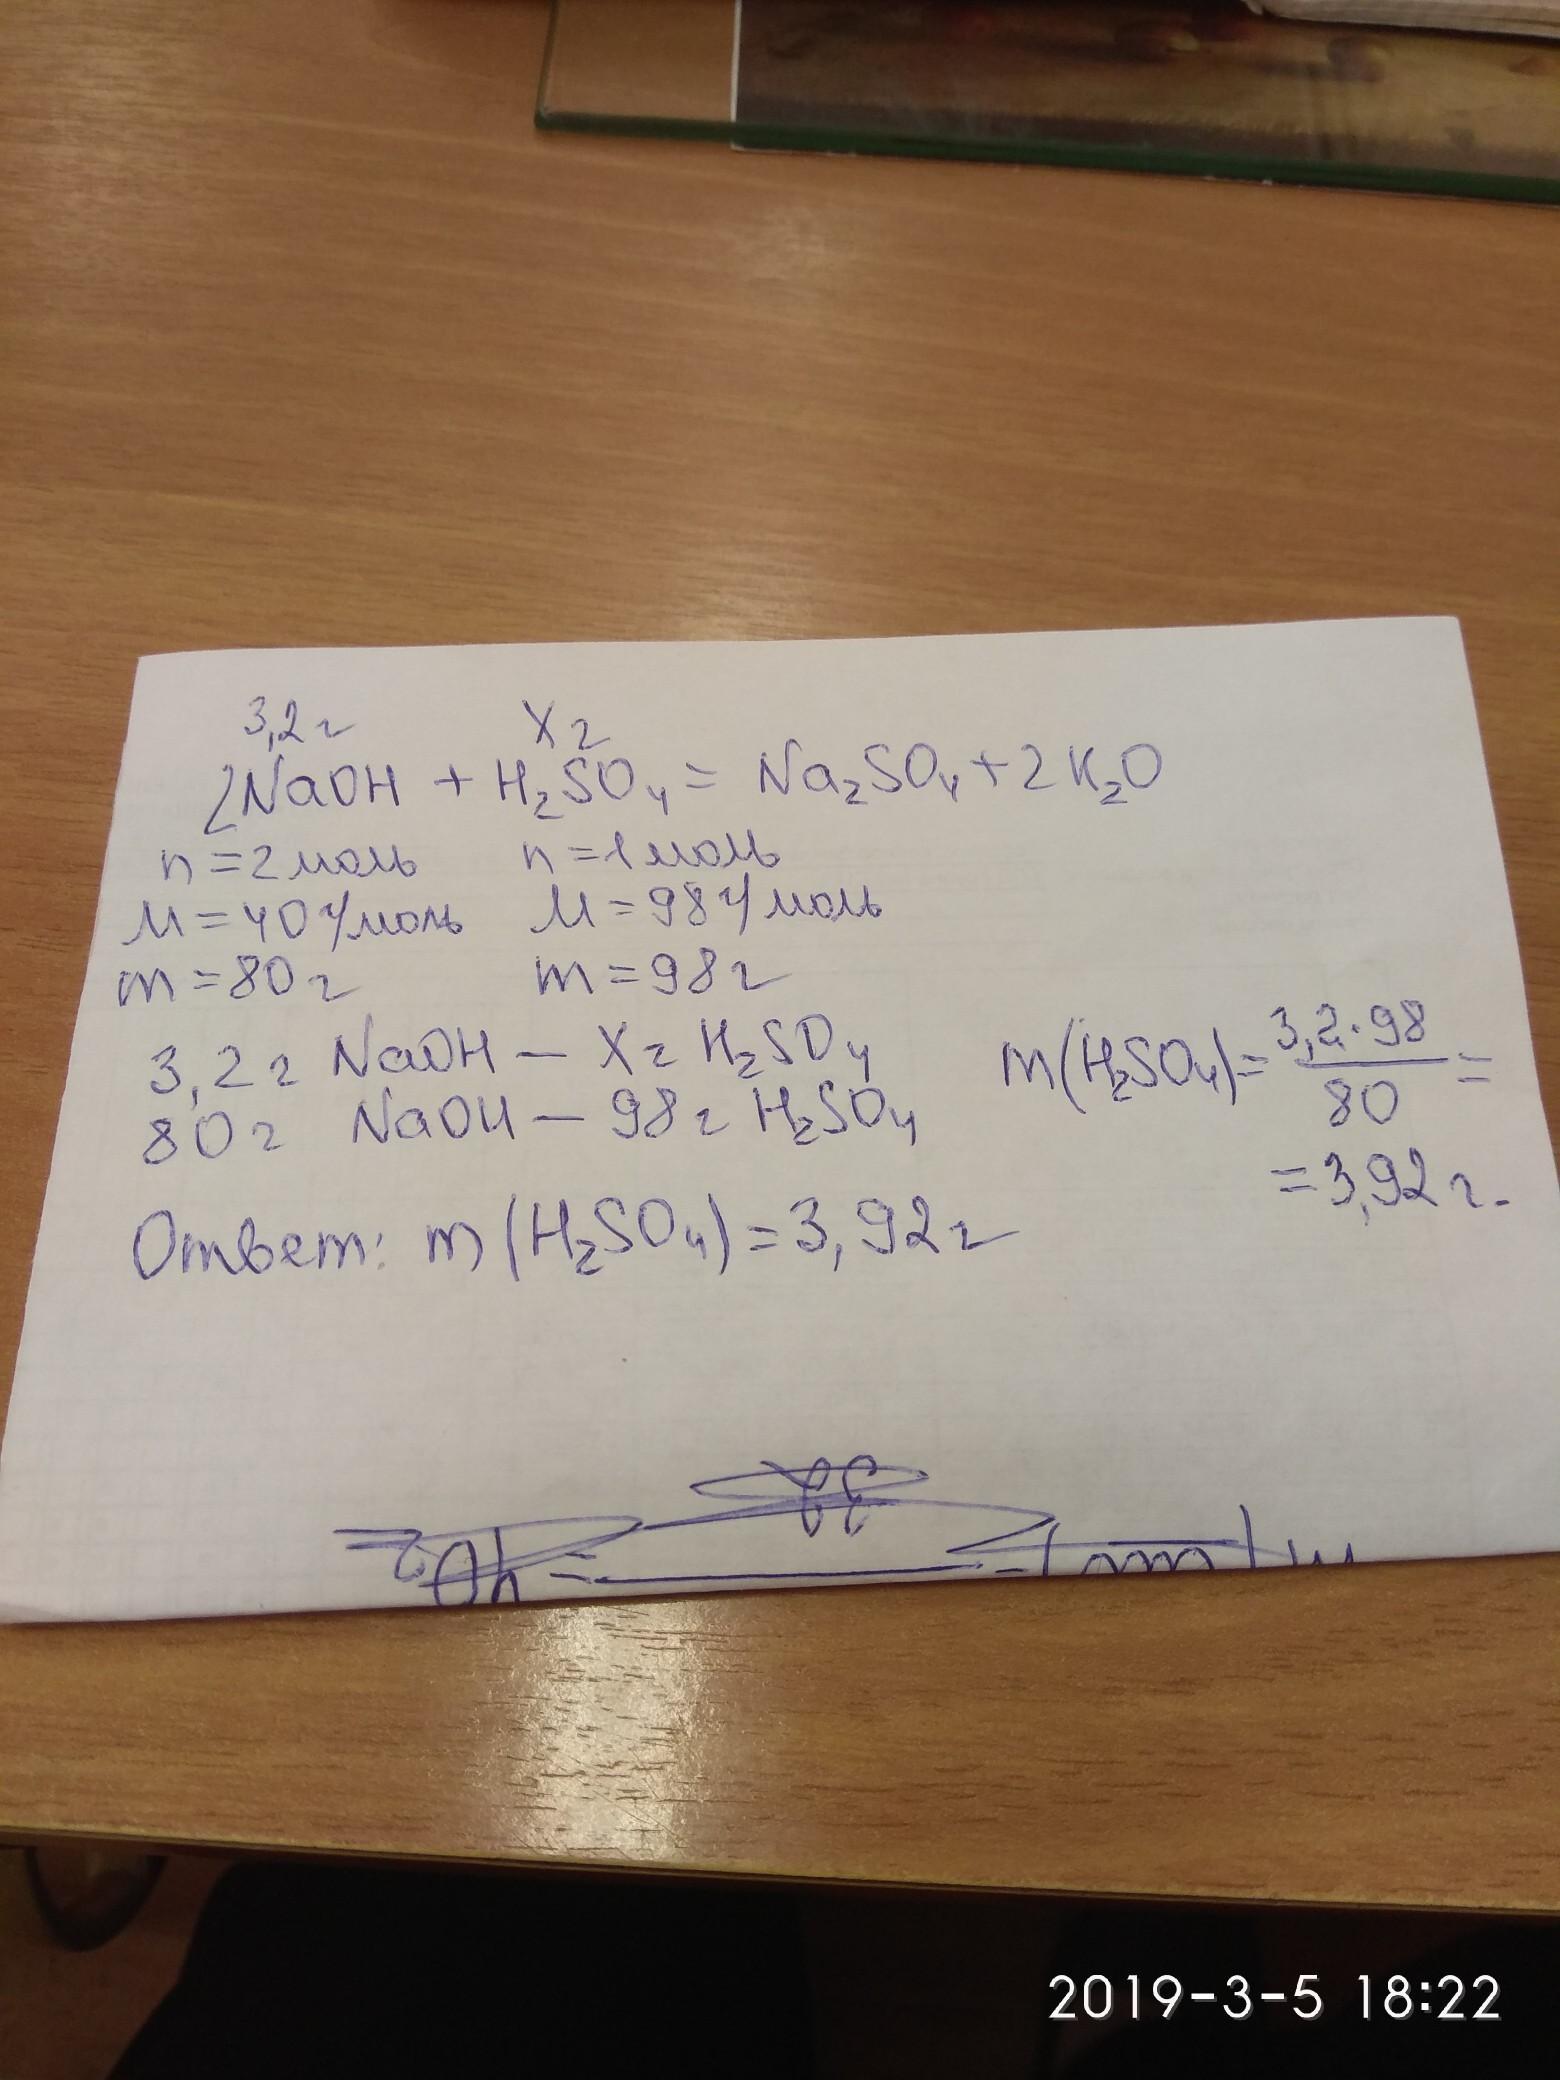 3,2 г X г
2NaOH + H₂SO₄ = Na₂SO₄ + 2K₂O
n = 2 моль n = 1 моль
M = 40 г/моль M = 98 г/моль
m = 80 г m = 98 г
3,2 г NaOH — X г H₂SO₄
80 г NaOH — 98 г H₂SO₄
m(H₂SO₄) = 3,2·98 =
80
= 3,92 г.
Ответ: m(H₂SO₄) = 3,92 г
2019-3-5 18:22